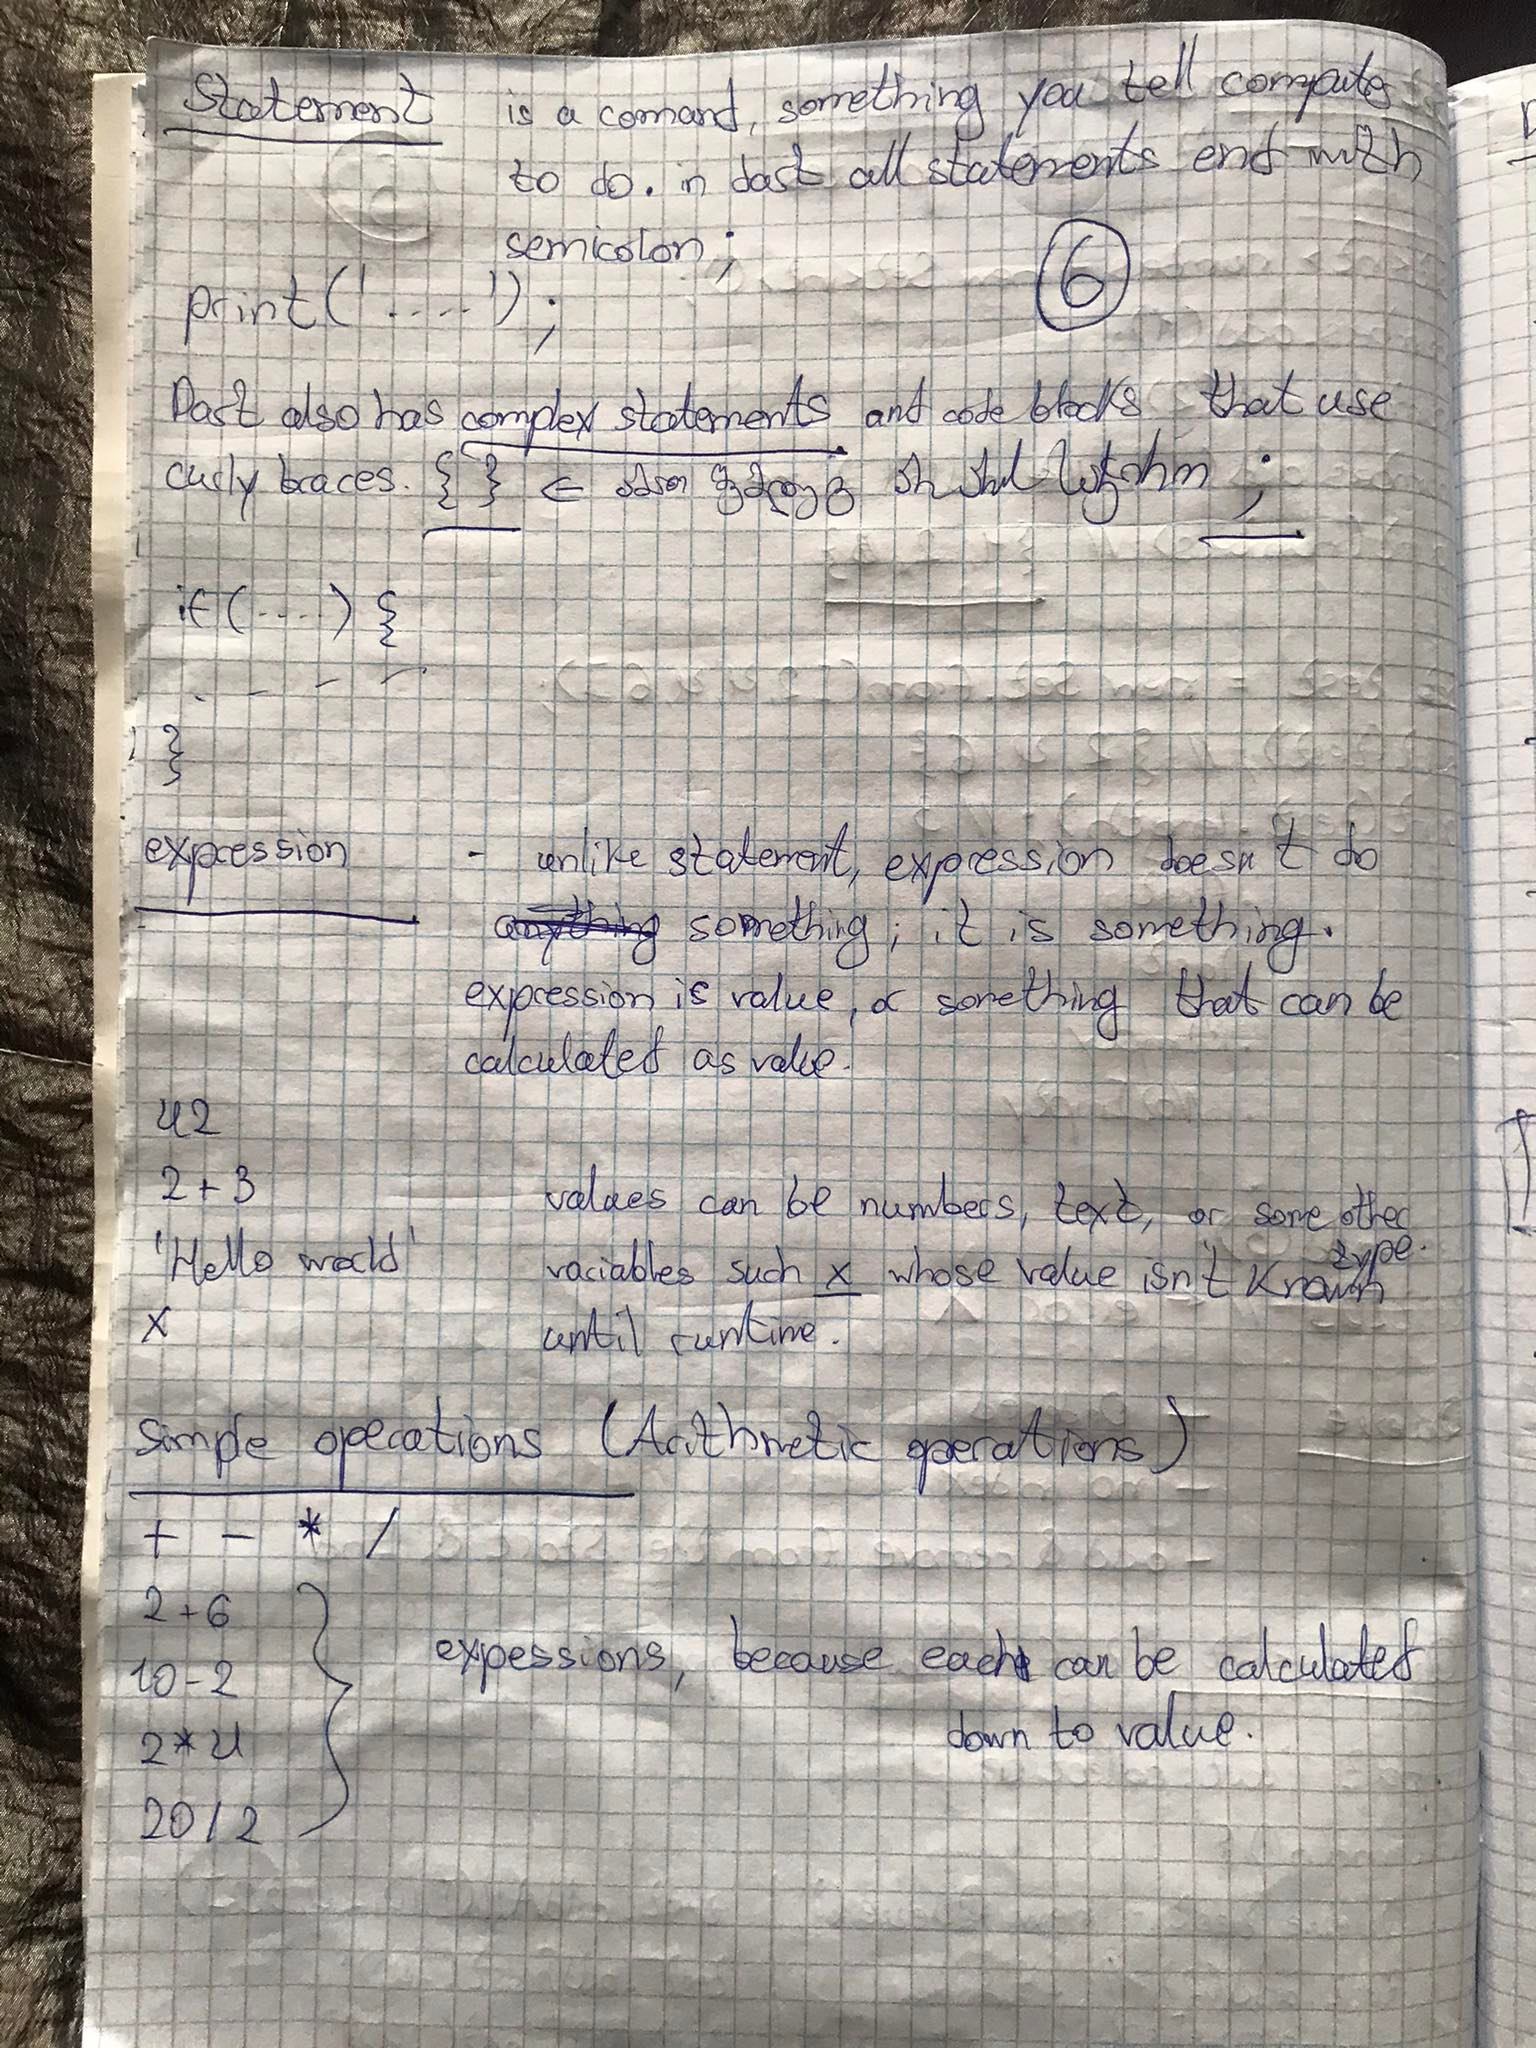 Statement is a comand, something you tell computer
to do. in dart all statements end with
semicolon ;
6
print('....');
Dart also has complex statements and code blocks that use
curly braces. { } ← ;
if (....) {
. - - -
}
expression - unlike statement, expression doesn't do
anything something; it is something.
expression is value, or something that can be
calculated as value.
42
2 + 3
values can be numbers, text, or some other
type.
'Hello world'
variables such x whose value isn't known
x
until runtime.
Simple operations (Arithmetic operations)
+ - * /
2+6
10-2
2*4
20/2
expessions, because each can be calculated
down to value.